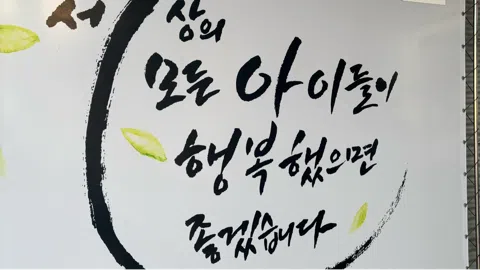 서 상의
모든 아이들이
행복했으면
좋겠습니다